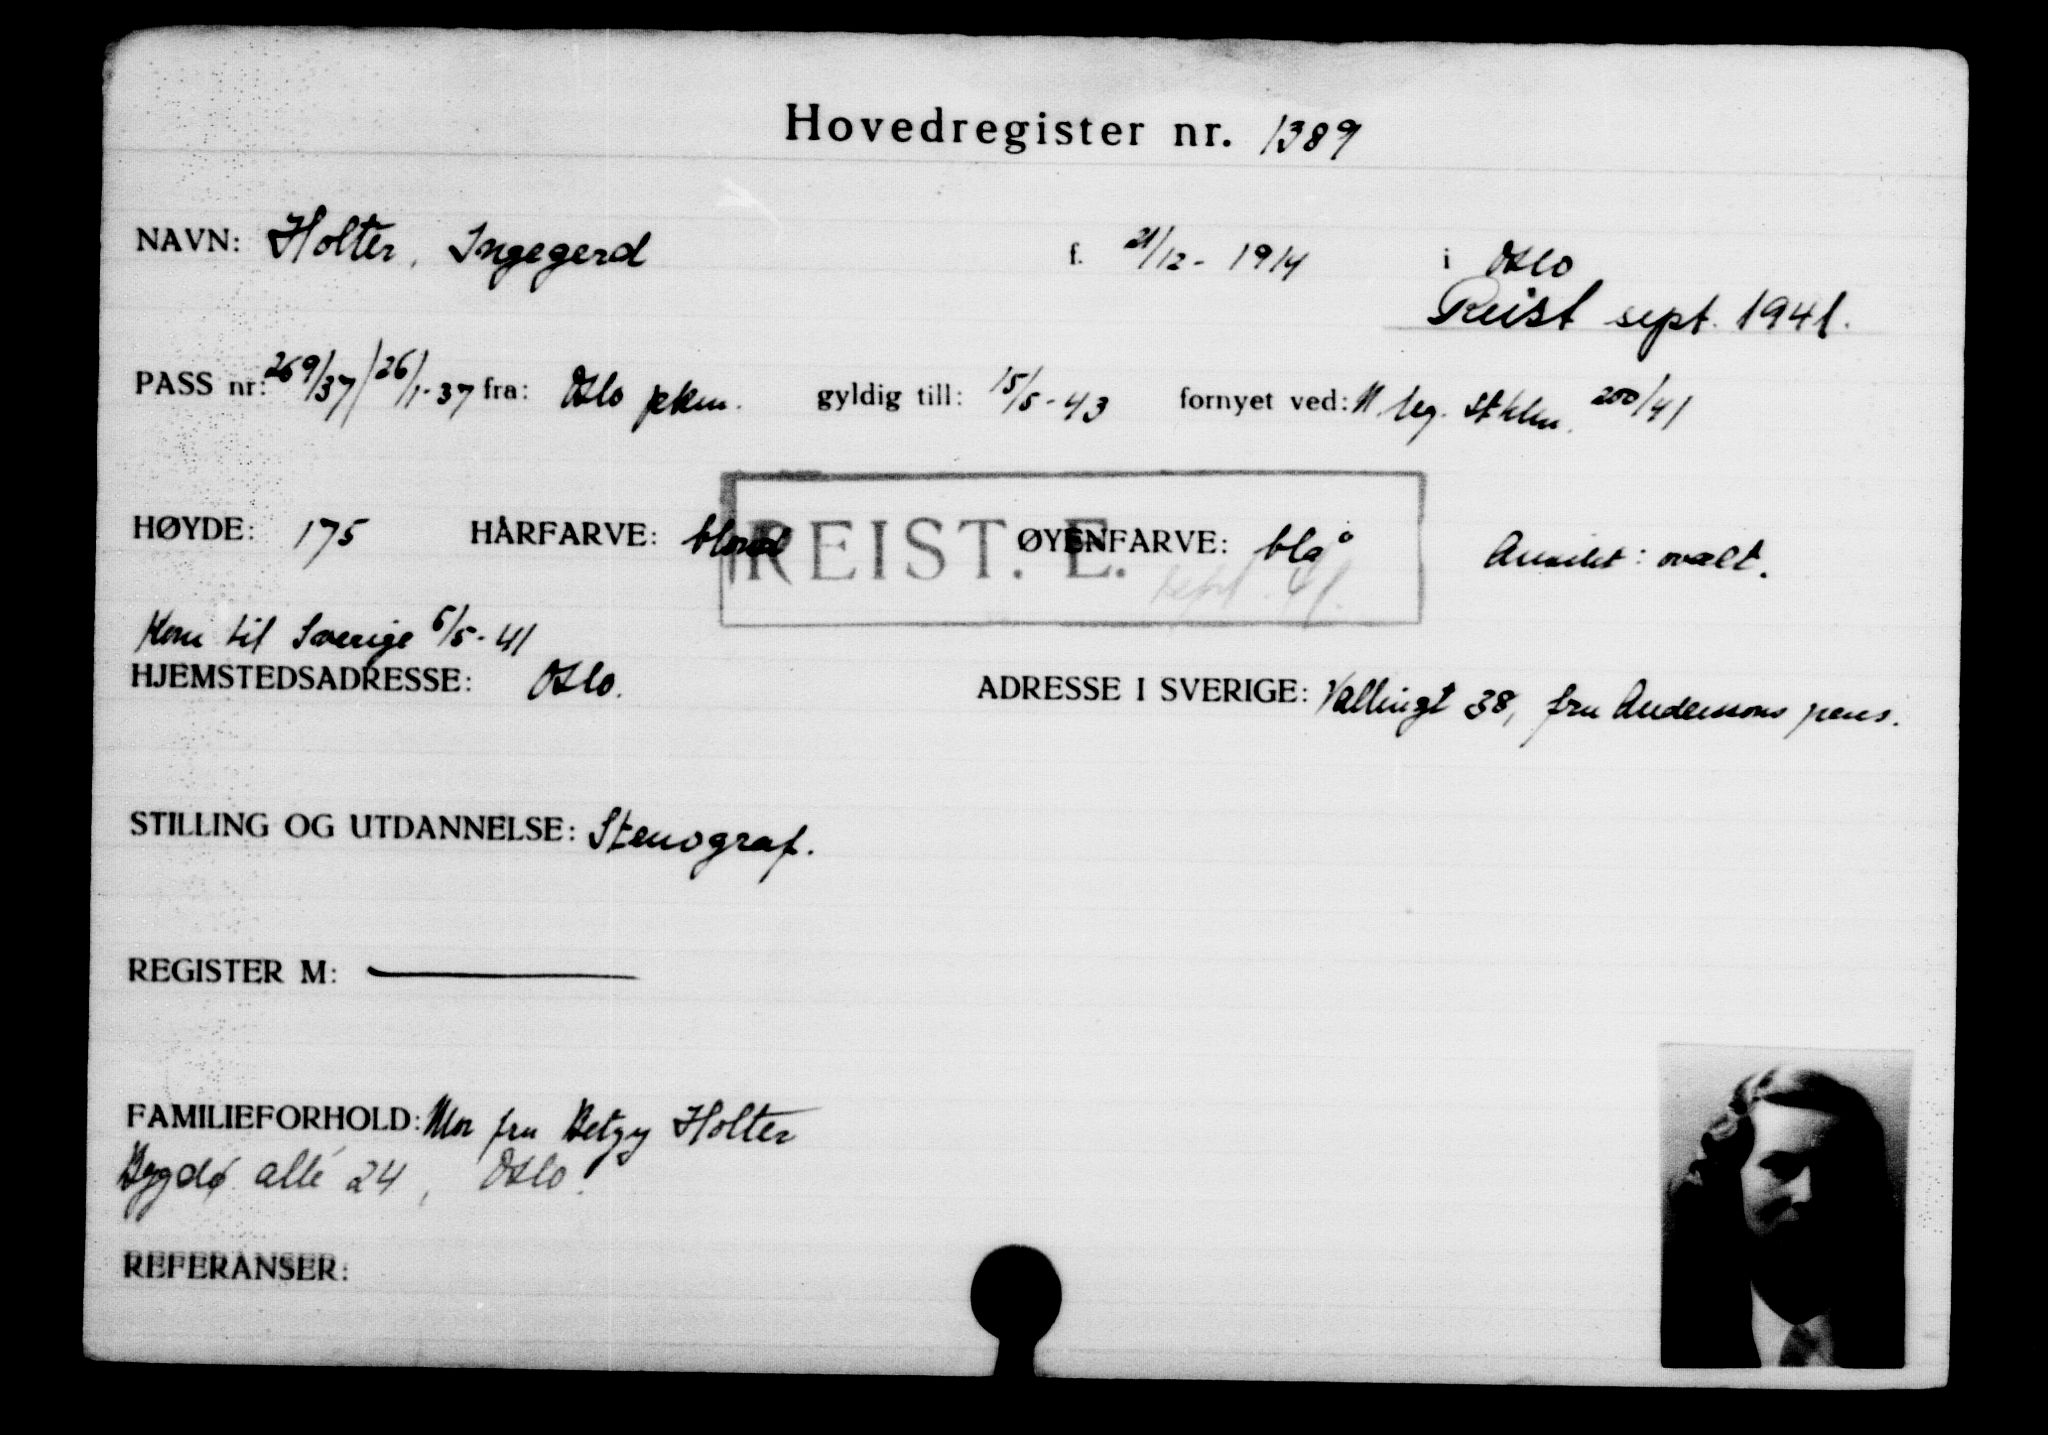 Hovedregister nr. 1389
NAVN: Holter, Ingegerd f. 21/12 - 1914 i Oslo
Reist sept. 1941.
PASS nr: 269/37/26/1-37 fra: Oslo pkm. gyldig till: 15/5-43 fornyet ved: N leg. Sthlm. 200/41
HØYDE: 175 HÅRFARVE: blond ØYENFARVE: blå Ansiktet: ovalt.
REIST. E.
sept. 41.
Kom til Sverige 6/5-41
HJEMSTEDSADRESSE: Oslo. ADRESSE I SVERIGE: Wallingt 38, fru Anderssons pens.
STILLING OG UTDANNELSE: Stenograf.
REGISTER M:
FAMILIEFORHOLD: Mor fru Betzy Holter
Bygdø allé 24, Oslo.
REFERANSER: